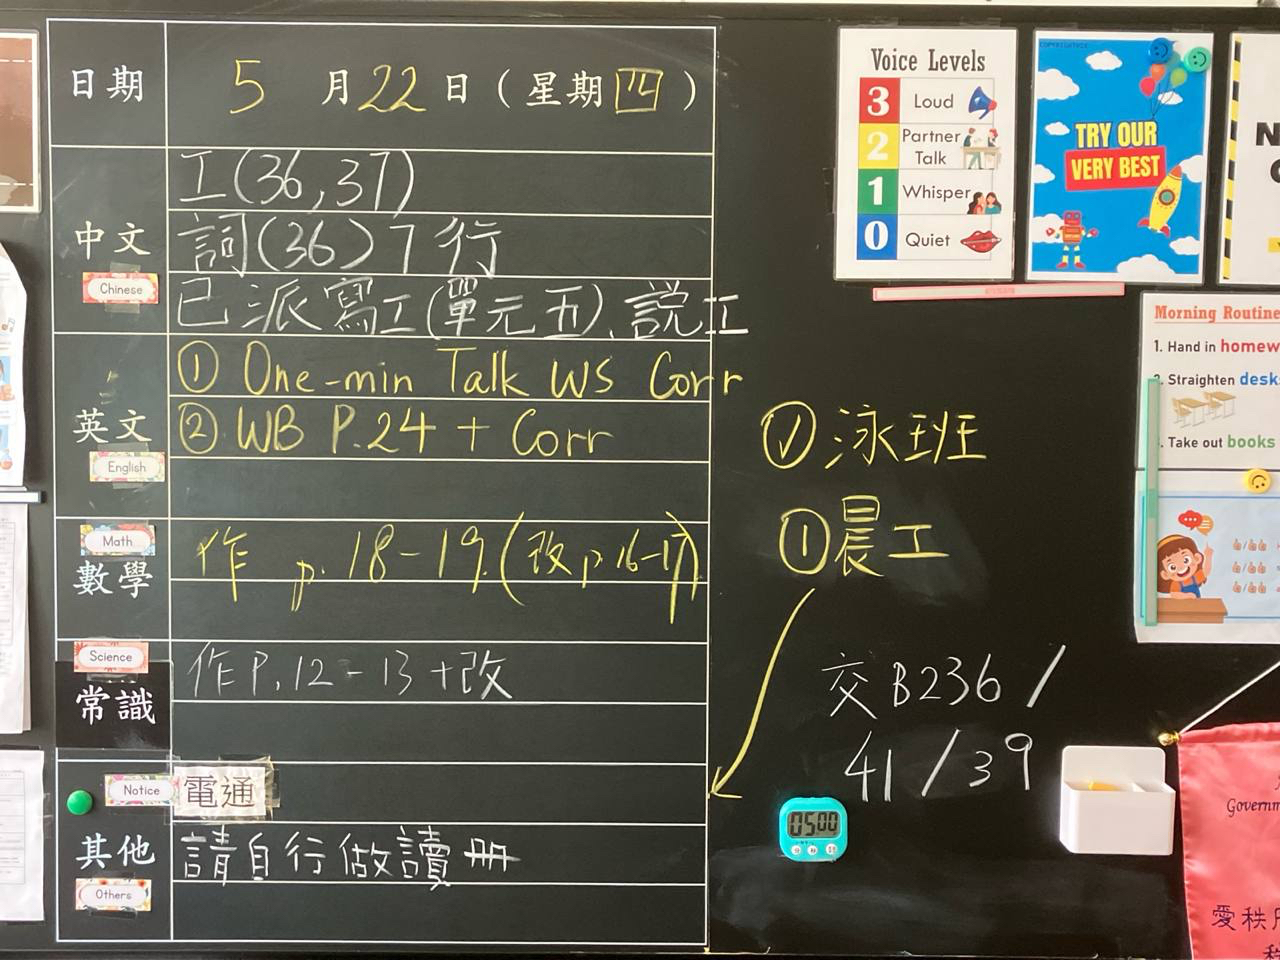 日期 5 月 22 日 ( 星期 四 )
中文 Chinese
工(36,37)
詞(36) 7 行
已派寫工(單元五)、説工
英文 English
① One-min Talk WS Corr
② WB P.24 + Corr
Math 數學
作 p. 18-19.(改p.16-17)
Science 常識
作P.12-13+改
Notice 電通
其他 Others
請自行做讀冊
泳班
①晨工
交 B236 /
41 / 39
0500
Voice Levels
3 Loud
2 Partner Talk
1 Whisper
0 Quiet
TRY OUR
VERY BEST
Morning Routine
1. Hand in homew
2. Straighten desk
3. Take out books
Governm
愛秩